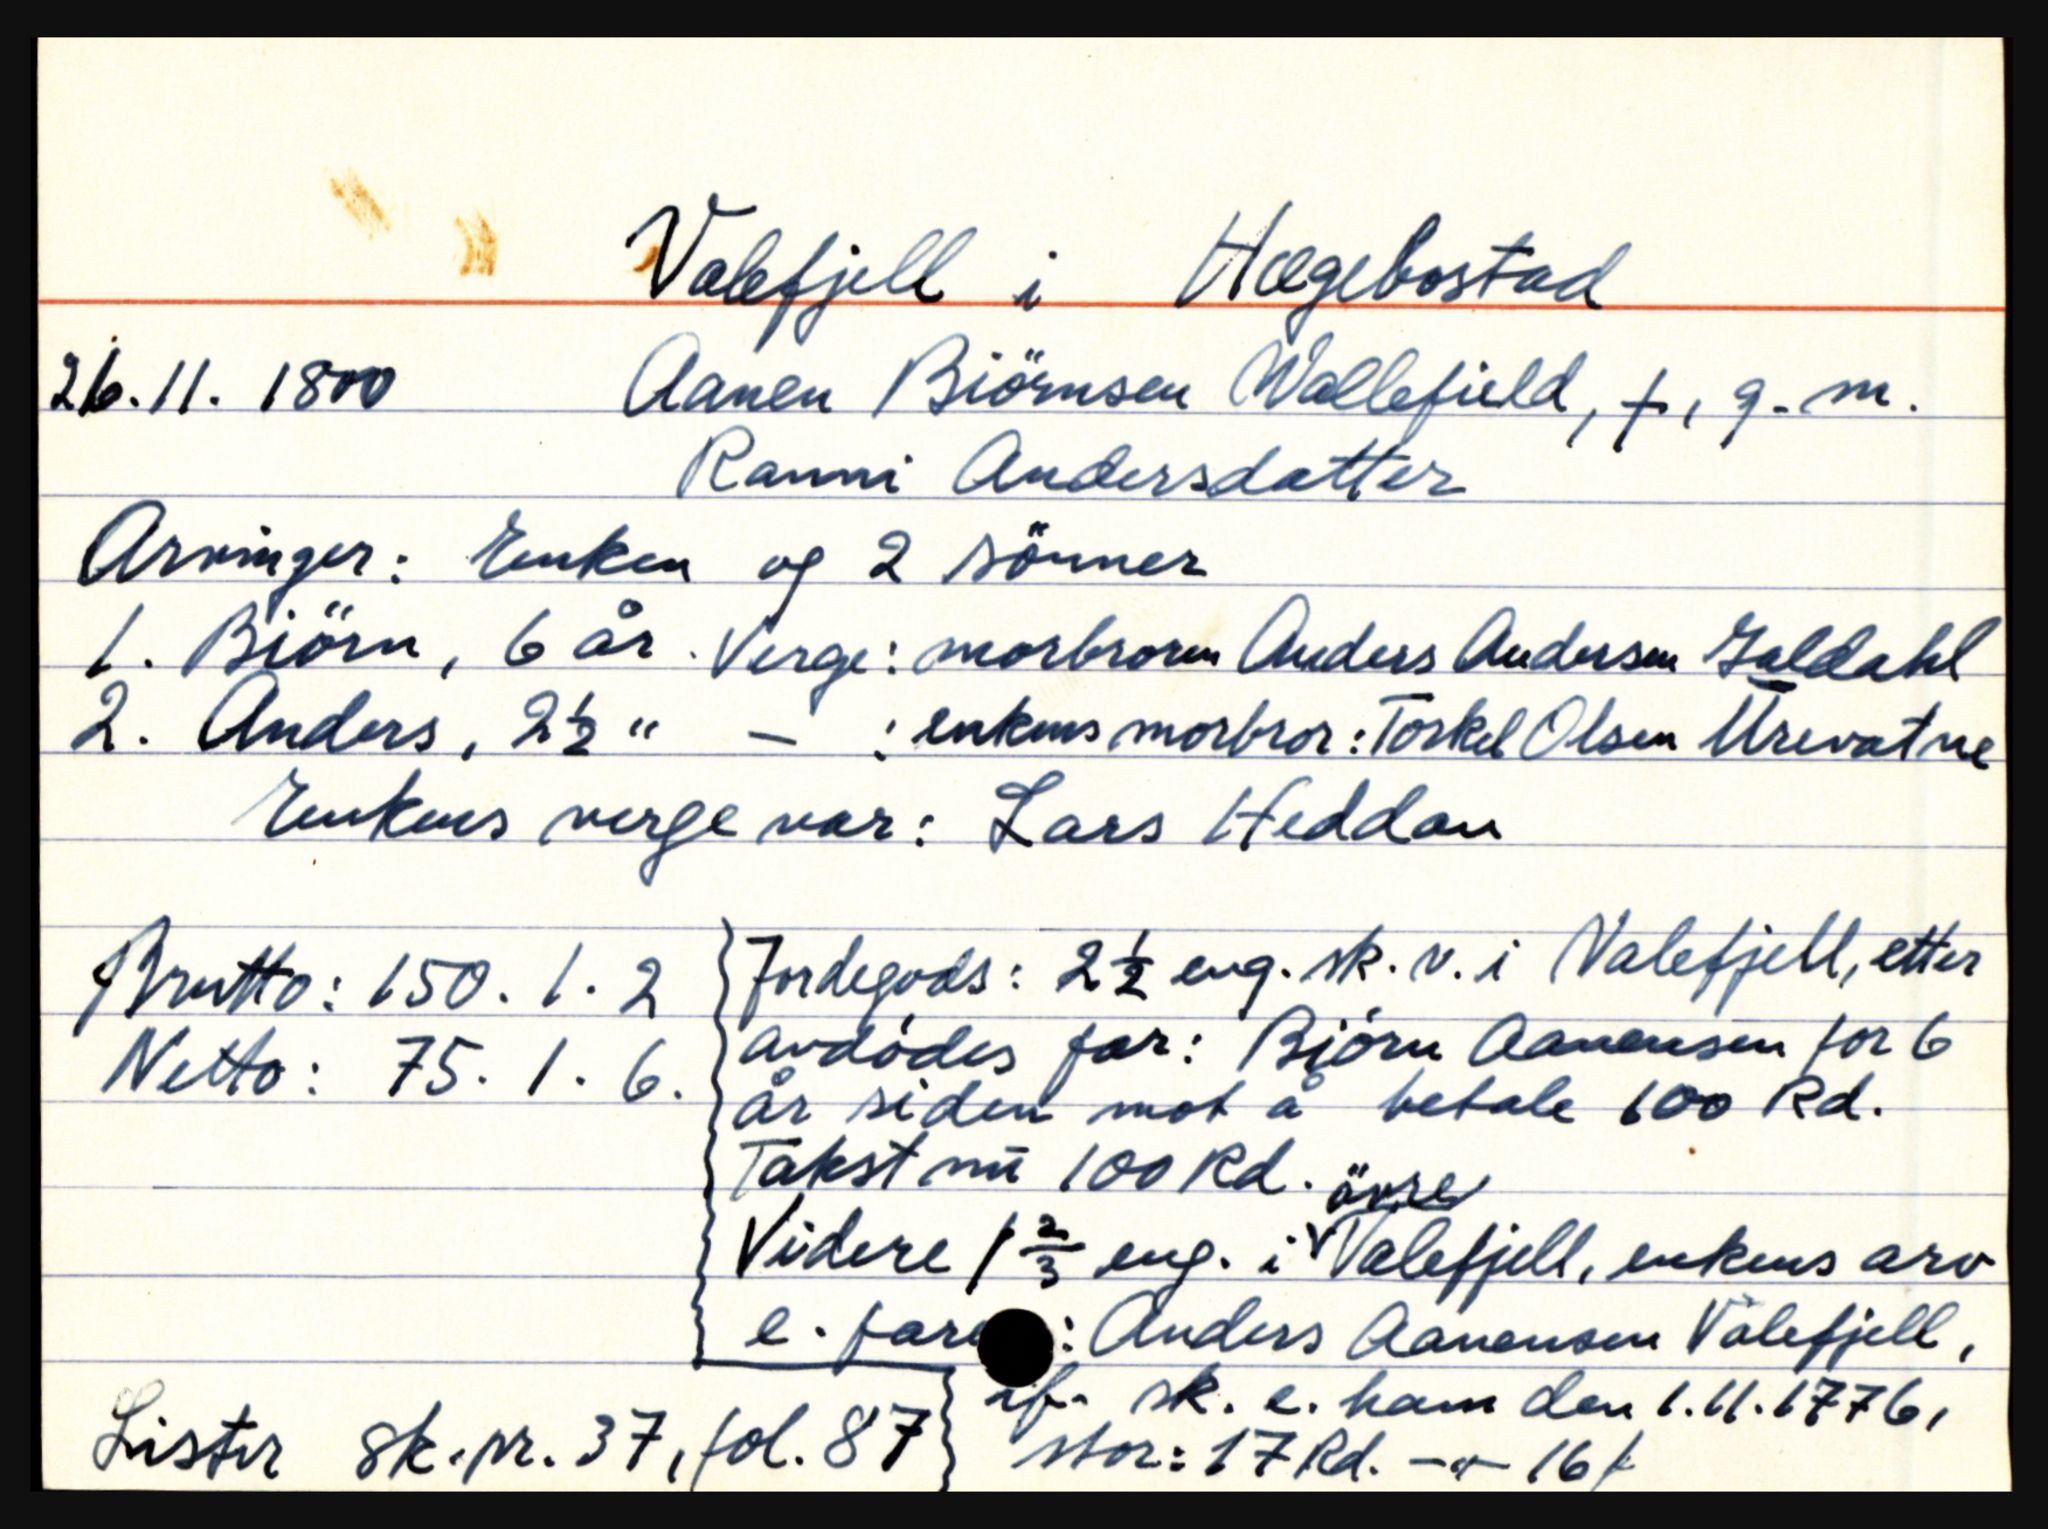 Valefjell i Hægebostad
26.11. 1800 Aanen Biörnsen Wallefield, †, g. m.
Ranni Andersdatter
Arvinger: Enken og 2 sönner
1. Biörn, 6 år. Verge: morbroren Anders Andersen Galdahl
2. Anders, 2½ " — : enkens morbror: Torkel Olsen Urevatne
Enkens verge var: Lars Heddan
Brutto: 150. 1. 2
Netto: 75. 1. 6.
Jordegods: 2½ eng. sk. v. i Valefjell, etter
avdødes far: Biørn Aanensen for 6
år siden mot å betale 100 Rd.
Takst nu 100 Rd.
Videre 1 2/3 eng. i övre Valefjell, enkens arv
e. : Anders Aanensen Valefjell,
if. sk. e. ham den 1.11.1776,
stor: 17 Rd. —"— 16
Lister sk. pr. 37, fol. 87